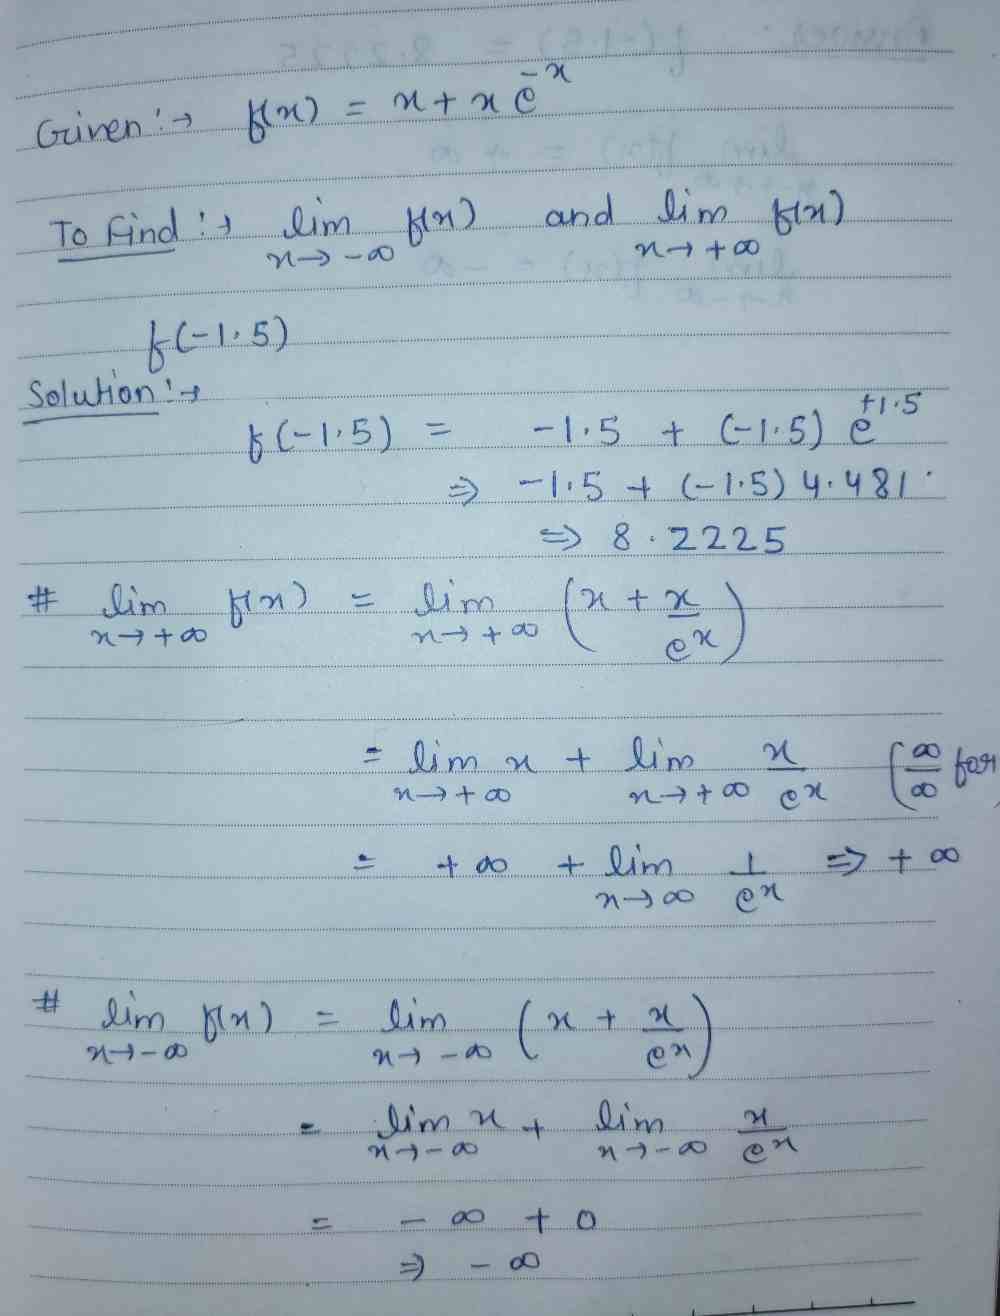 Given :→ f(x) = x + x e^-x
To Find :→ lim x→-∞ f(x) and lim x→+∞ f(x)
f(-1.5)
Solution :→
f(-1.5) = -1.5 + (-1.5) e^+1.5
⇒ -1.5 + (-1.5) 4.481
⇒ 8.2225
# lim x→+∞ f(x) = lim x→+∞ (x + x/e^x)
= lim x→+∞ x + lim x→+∞ x/e^x (∞/∞ for
= +∞ + lim x→∞ 1/e^x ⇒ +∞
# lim x→-∞ f(x) = lim x→-∞ (x + x/e^x)
= lim x→-∞ x + lim x→-∞ x/e^x
= -∞ + 0
⇒ -∞